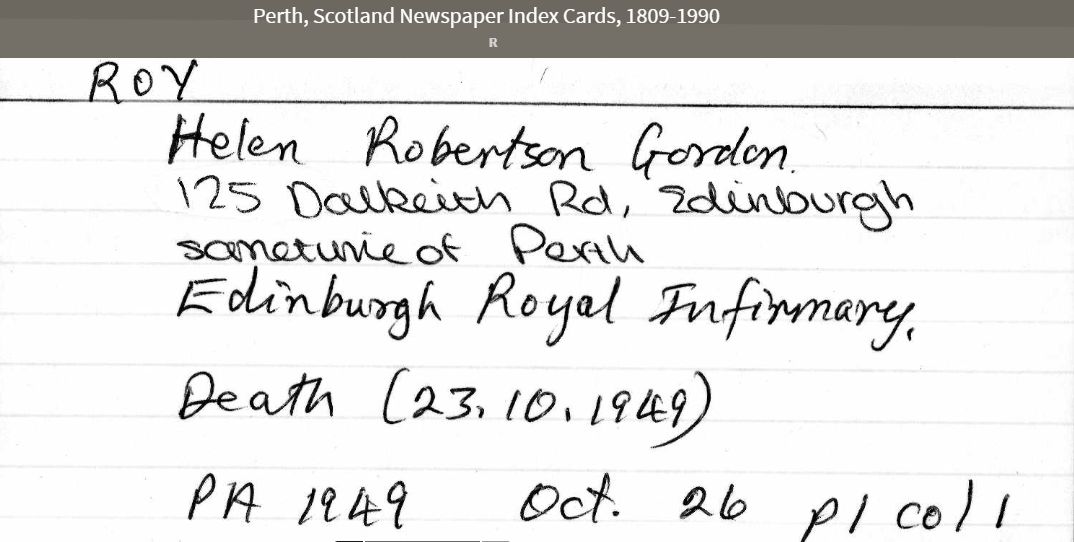 Perth, Scotland Newspaper Index Cards, 1809-1990
R
ROY
Helen Robertson Gordon.
125 Dalkeith Rd, Edinburgh
sometime of Perth
Edinburgh Royal Infirmary.
Death (23.10.1949)
PA 1949 Oct. 26 p1 col 1